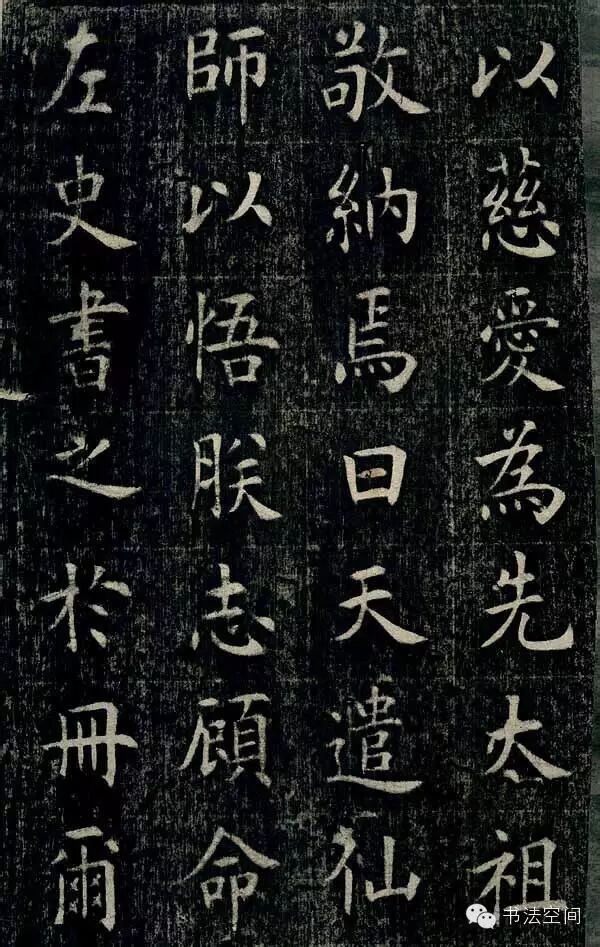 以慈愛為先太祖
敬納焉曰天遣仙
師以悟朕志顧命
左史書之於冊爾
书法空间